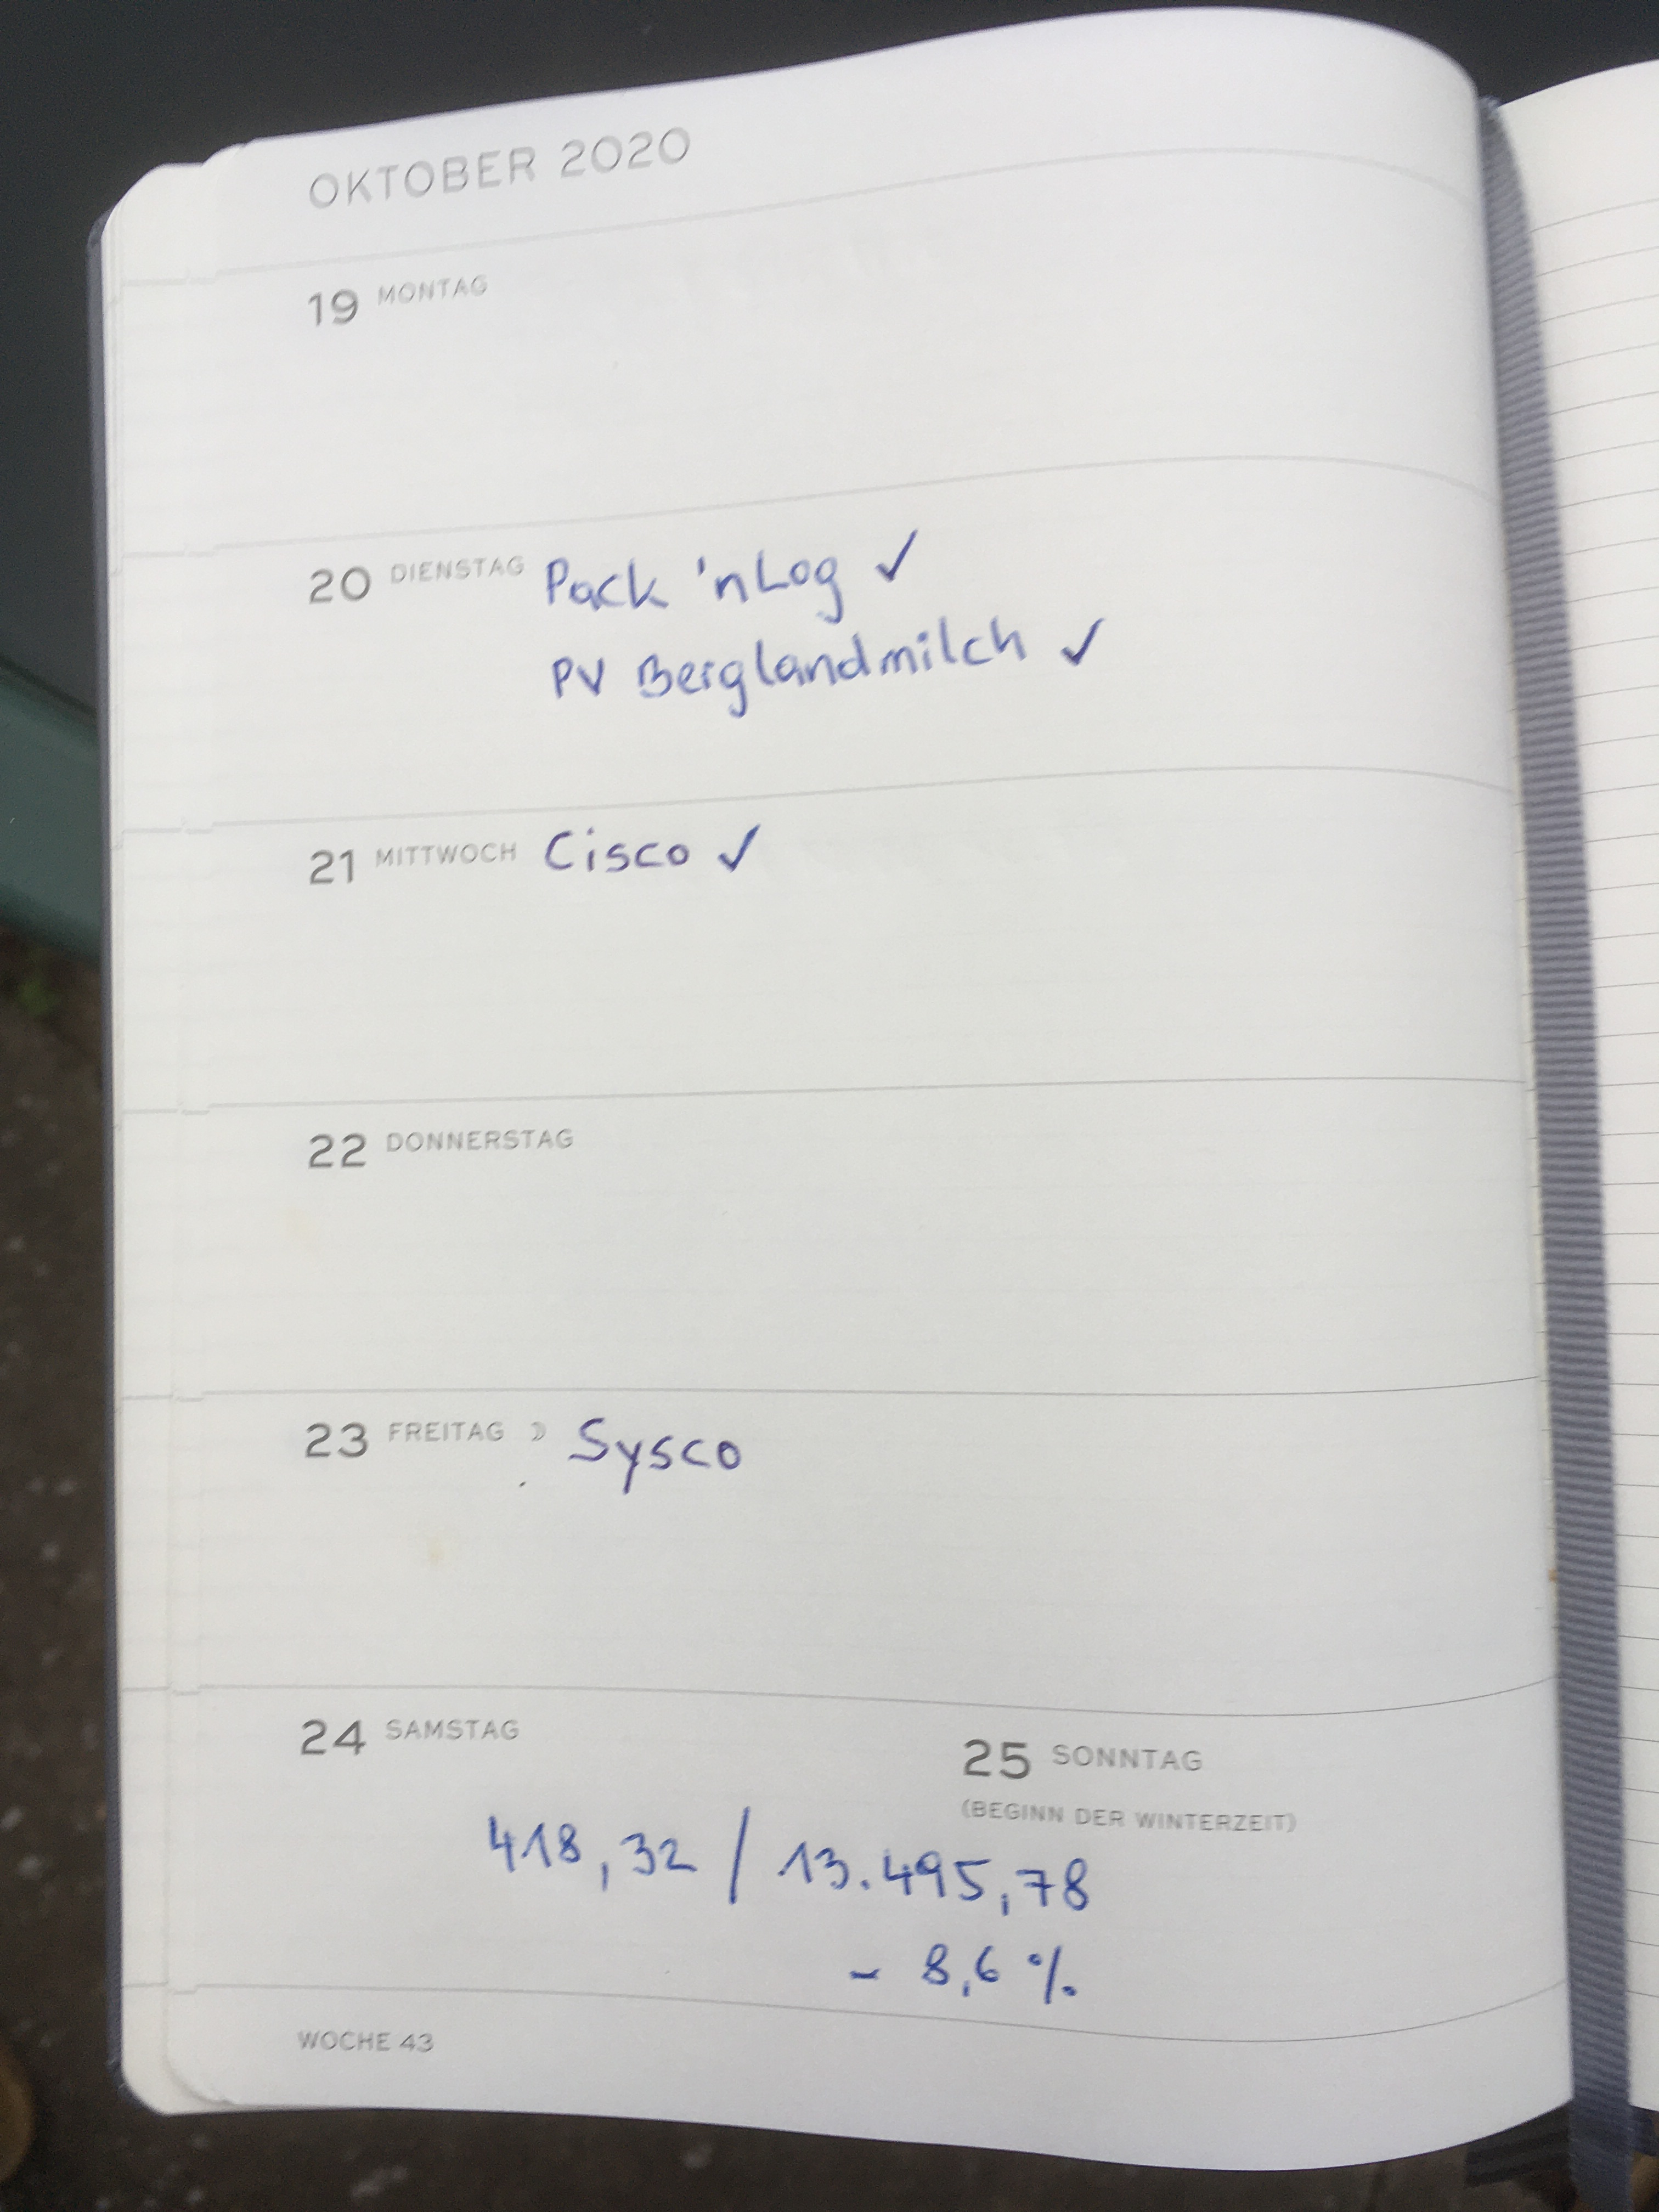 OKTOBER 2020
19 MONTAG
20 DIENSTAG Pack 'nLog ✓
PV Berglandmilch ✓
21 MITTWOCH Cisco ✓
22 DONNERSTAG
23 FREITAG ☽ Sysco
24 SAMSTAG
25 SONNTAG
(BEGINN DER WINTERZEIT)
418,32 / 13.495,78
- 8,6 %
WOCHE 43